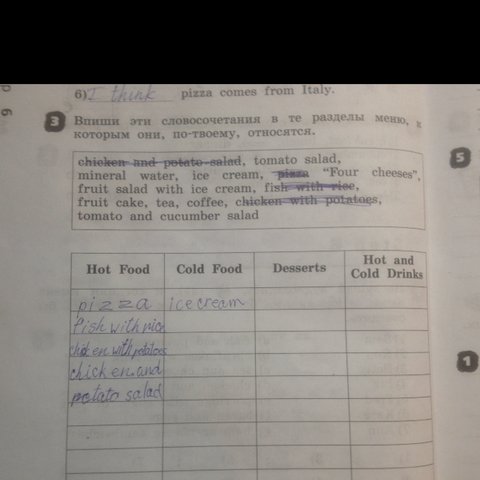 6) I think pizza comes from Italy.
3 Впиши эти словосочетания в те разделы меню, к
которым они, по-твоему, относятся.
chicken and potato salad, tomato salad,
mineral water, ice cream, pizza "Four cheeses",
fruit salad with ice cream, fish with rice,
fruit cake, tea, coffee, chicken with potatoes,
tomato and cucumber salad
Hot Food Cold Food Desserts Hot and
Cold Drinks
pizza ice cream
fish with rice
chicken with potatoes
chicken and
potato salad
5
1